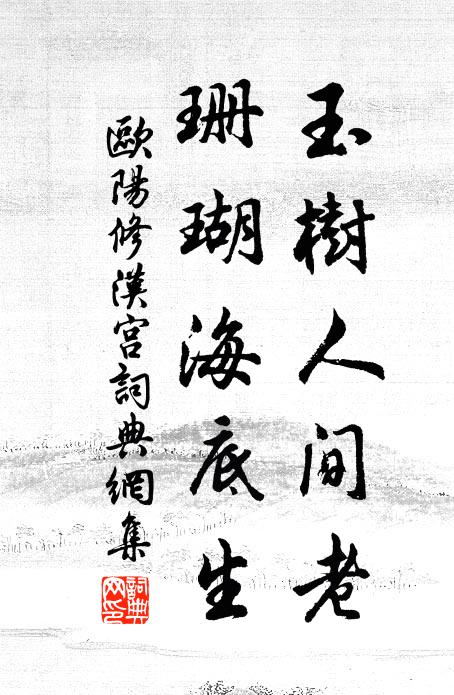 玉樹人間老
珊瑚海底生
歐陽修漢宮詞典網集
詞典網印